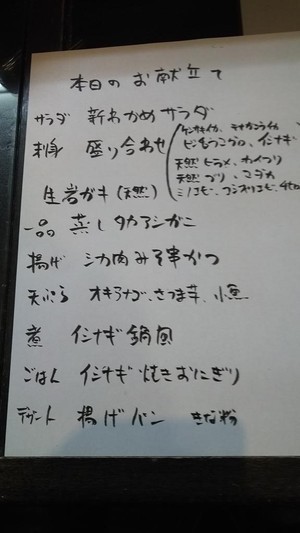 本日のお献立て
サラダ 新わかめサラダ
刺身 盛り合わせ
ケンサキイカ、モンゴウイカ
ビンチョウマグロ、イシナギ
天然ヒラメ、カイワリ
天然ブリ、マダカ
etc
生岩ガキ(天然)
一品 蒸しタカアシガニ
揚げ シカ肉みそ串かつ
天ぷら オキアナゴ、さつま芋、小魚
煮 イシナギ鍋風
ごはん イシナギ焼きおにぎり
デザート 揚げパン きな粉